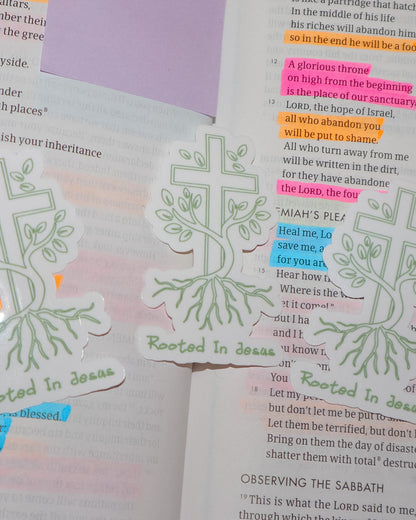 altars,
the gree
yside.
nder
places⁸
ish your inheritance
s blessed.
In the middle of his life
his riches will abandon him
so in the end he will be a foo
12 A glorious throne
on high from the beginning
is the place of our sanctuary.
13 LORD, the hope of Israel,
all who abandon you
will be put to shame.
All who turn away from me
will be written in the dirt,
for they have abandone
the LORD, the fou
EMIAH'S PLEA
Heal me, Lo
save me, a
for you are
15 Hear how th
Where is the w
et it come!"
But I ha
and I h
u know
You
18 Let my pe
but don't let me be put to sha
Let them be terrified, but don't l
Bring on them the day of disaste
shatter them with total⁸ destruct
OBSERVING THE SABBATH
19 This is what the LORD said to me,
through which the king
Rooted In Jesus
Rooted In Jesus
Rooted In Jesus